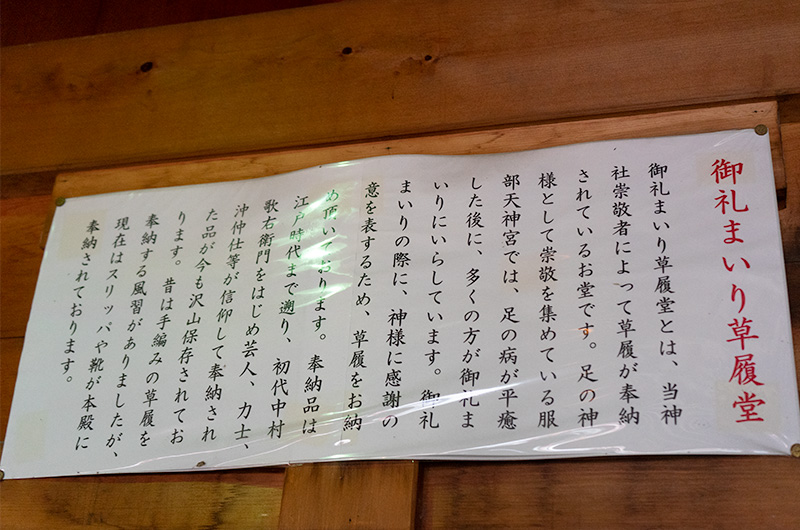 御礼まいり草履堂
御礼まいり草履堂とは、当神
社崇敬者によって草履が奉納
されているお堂です。足の神
様として崇敬を集めている服
部天神宮では、足の病が平癒
した後に、多くの方が御礼ま
いりにいらしています。御礼
まいりの際に、神様に感謝の
意を表するため、草履をお納
め頂いております。奉納品は
江戸時代まで遡り、初代中村
歌右衛門をはじめ芸人、力士、
沖仲仕等が信仰して奉納され
た品が今も沢山保存されてお
ります。昔は手編みの草履を
奉納する風習がありましたが、
現在はスリッパや靴が本殿に
奉納されております。